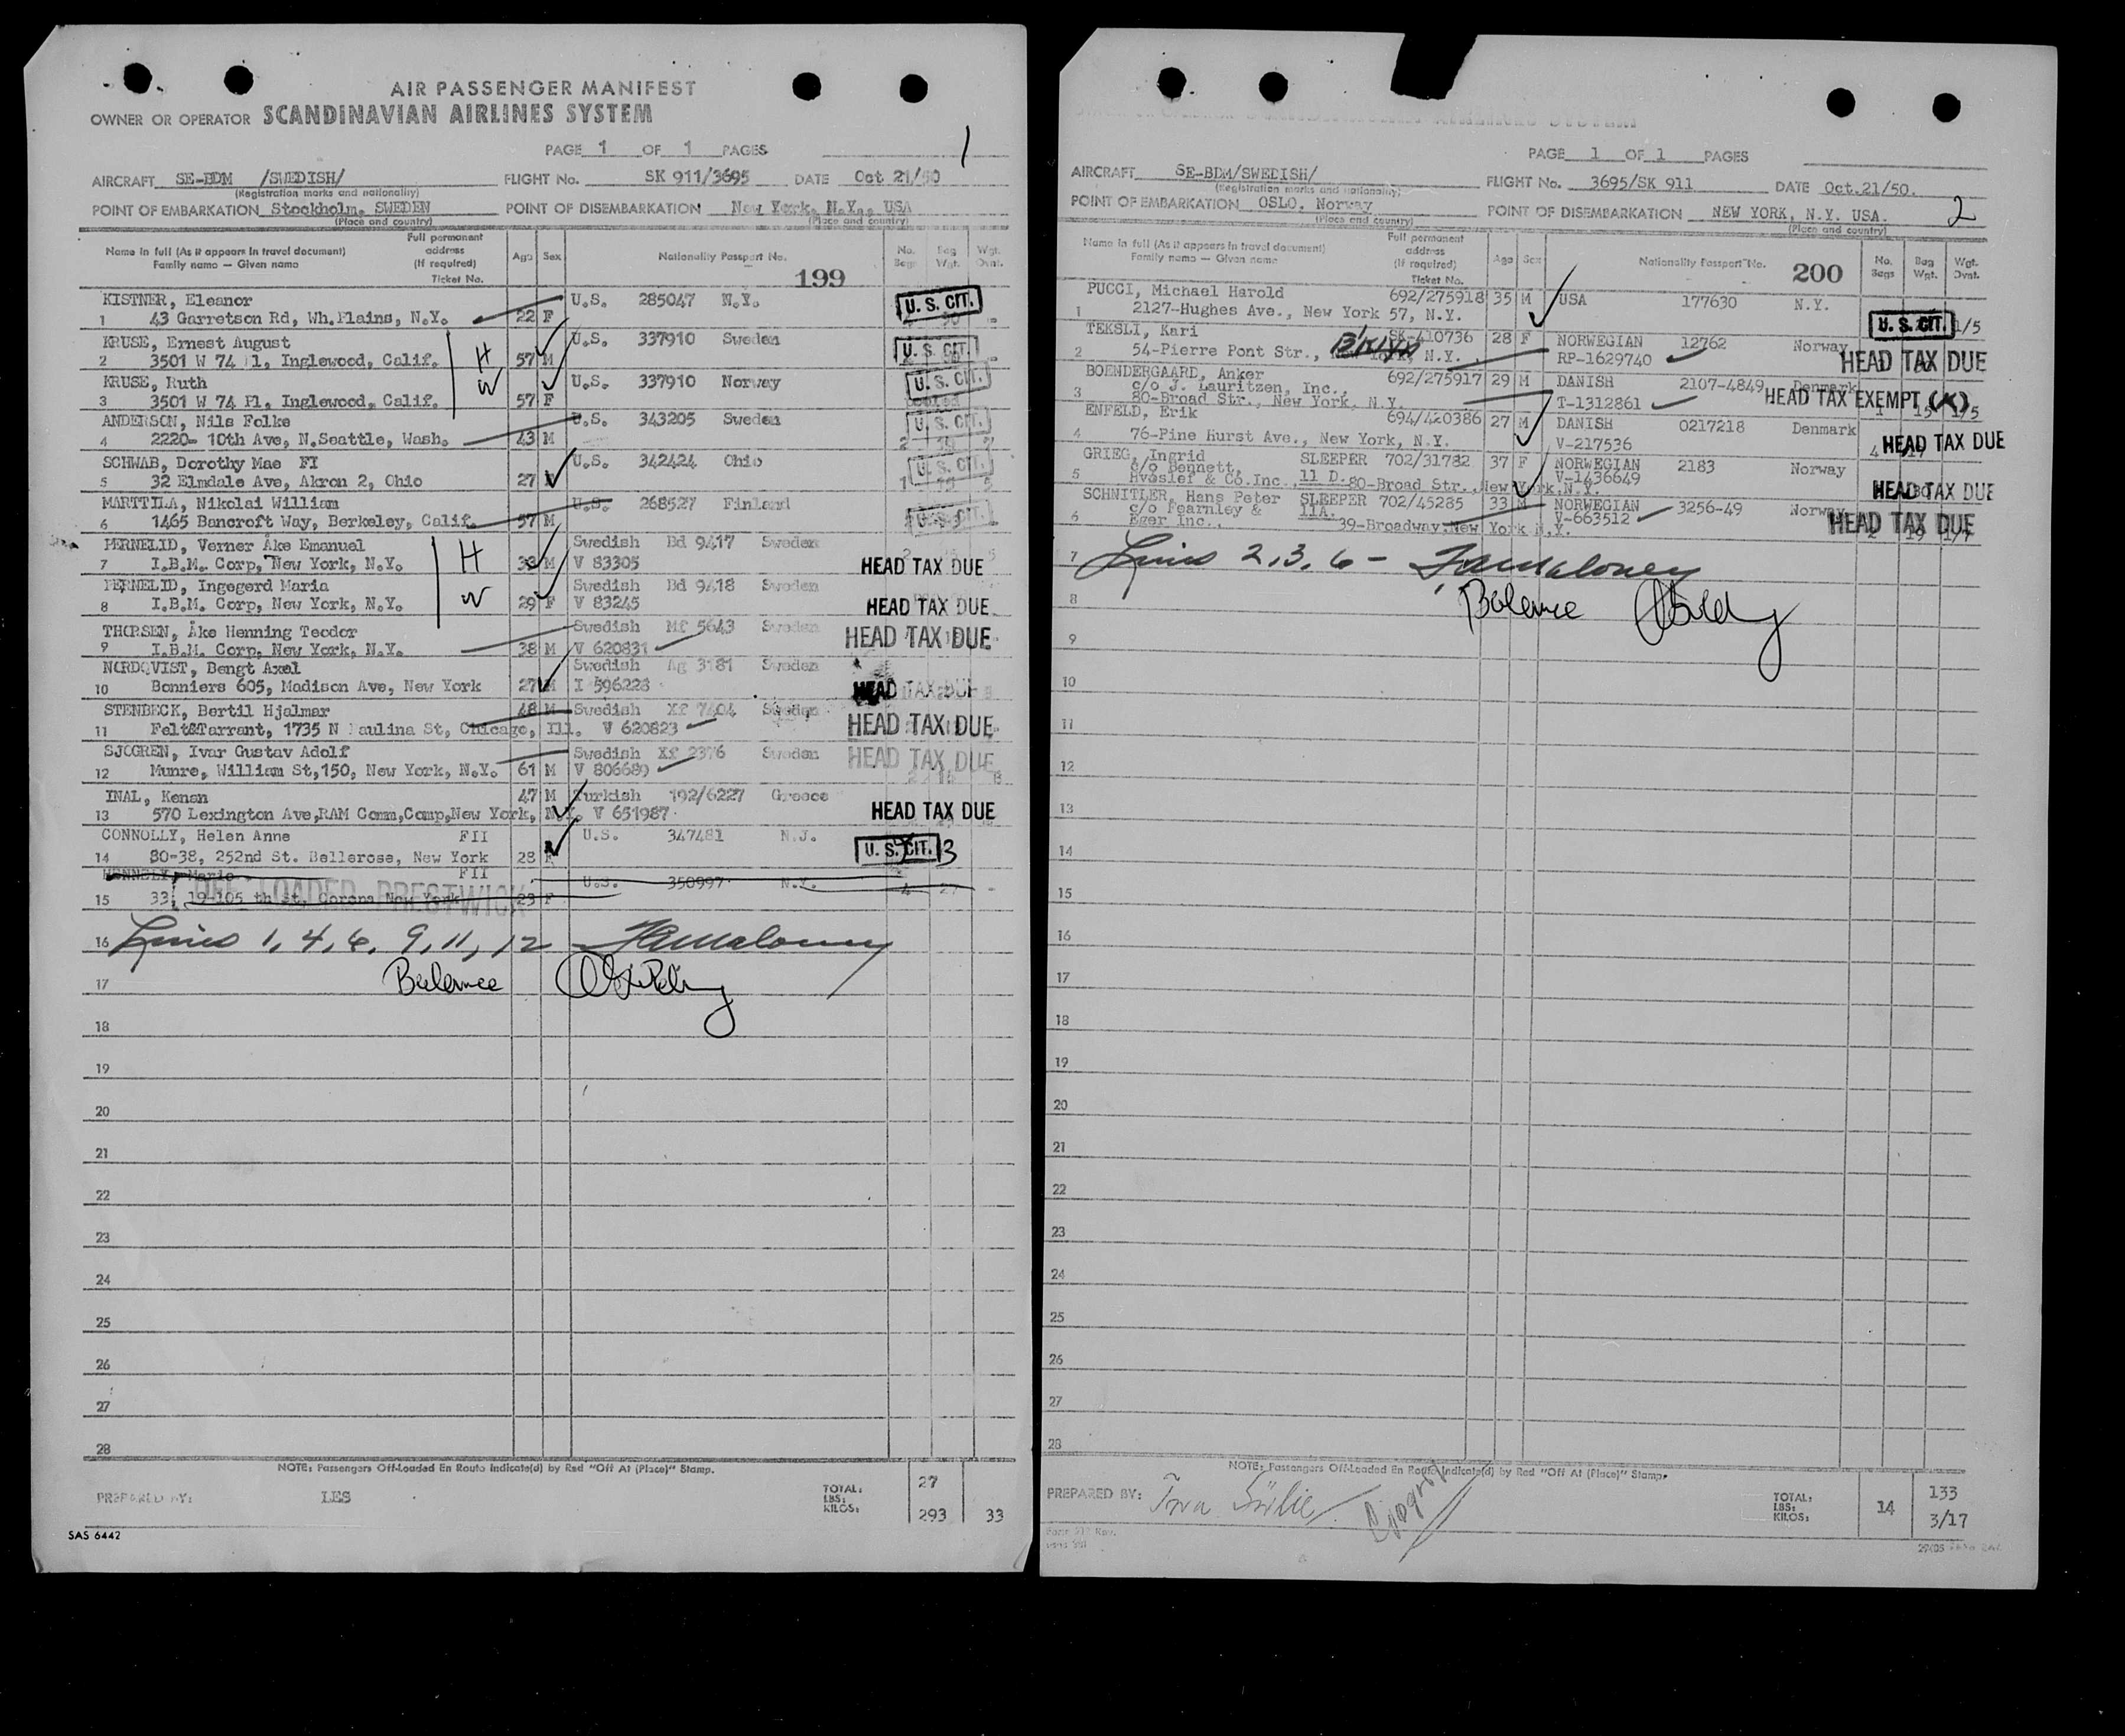 AIR PASSENGER MANIFEST
OWNER OR OPERATOR SCANDINAVIAN AIRLINES SYSTEM
PAGE 1 OF 1 PAGES
1
AIRCRAFT SE-BDM /SWEDISH/ FLIGHT No. SK 911/3695 DATE Oct 21/50
(Registration marks and nationality)
POINT OF EMBARKATION Stockholm, SWEDEN POINT OF DISEMBARKATION New York, N.Y., USA
(Place and country) (Place and country)
Name in full (As it appears in travel document) Family name — Given name Full permanent address (If required) Ticket No. Age Sex Nationality Passport No. 199 No. Bags Bag Wgt. Wgt. Ovnt.
KISTNER, Eleanor U.S. 285047 N.Y. U. S. CIT.
1 43 Garretson Rd, Wh.Plains, N.Y. 22 F
KRUSE, Ernest August U.S. 337910 Sweden U. S. CIT.
2 3501 W 74 Pl, Inglewood, Calif. H 57 M
KRUSE, Ruth U.S. 337910 Norway U. S. CIT.
3 3501 W 74 Pl, Inglewood, Calif. W 57 F
ANDERSON, Nils Folke U.S. 343205 Sweden U. S. CIT.
4 2220- 10th Ave, N.Seattle, Wash. 43 M
SCHWAB, Dorothy Mae FI U.S. 342424 Ohio U. S. CIT.
5 32 Elmdale Ave, Akron 2, Ohio 27
MARTTILA, Nikolai William U.S. 268527 Finland U. S. CIT.
6 1465 Bancroft Way, Berkeley, Calif. 57 M
PERNELID, Verner Åke Emanuel Swedish Bd 9417 Sweden
7 I.B.M. Corp, New York, N.Y. H 33 M V 83305 HEAD TAX DUE
PERNELID, Ingegerd Maria Swedish Bd 9418 Sweden
8 I.B.M. Corp, New York, N.Y. W 29 F V 83245 HEAD TAX DUE
THORSEN, Åke Henning Teodor Swedish Mf 5643 Sweden
9 I.B.M. Corp, New York, N.Y. 38 M V 620831 HEAD TAX DUE
NORDQVIST, Bengt Axel Swedish Ag 3181 Sweden
10 Bonniers 605, Madison Ave, New York 27 M I 596228 HEAD TAX DUE
STENBECK, Bertil Hjalmar 48 M Swedish Xf 7404 Sweden
11 Felt&Tarrant, 1735 N Paulina St, Chicago, Ill. V 620823 HEAD TAX DUE
SJOGREN, Ivar Gustav Adolf Swedish Xf 2376 Sweden
12 Munre, William St,150, New York, N.Y. 61 M V 806689 HEAD TAX DUE
INAL, Kenan 47 M Turkish 192/6227 Greece
13 570 Lexington Ave,RAM Comm,Comp,New York, N.Y. V 651987 HEAD TAX DUE
CONNOLLY, Helen Anne FII U.S. 347481 N.J.
14 80-38, 252nd St. Bellerose, New York 28 F U. S. CIT. 13
Marie FII U.S. 350997 N.Y. 4 27 -
15 33, 19-105 th st. Corona New York 23 F
OFF LOADED PRESTWICK
16 Lines 1, 4, 6, 9, 11, 12 - Maloney
17 Balance
18
19
20
21
22
23
24
25
26
27
28
NOTE: Passengers Off-Loaded En Route Indicate(d) by Red "Off At (Place)" Stamp.
PREPARED BY: LES TOTAL: LBS: KILOS: 27 293 33
SAS 6442
PAGE 1 OF 1 PAGES
AIRCRAFT SE-BDM/SWEDISH/ FLIGHT No. 3695/SK 911 DATE Oct.21/50.
(Registration marks and nationality)
POINT OF EMBARKATION OSLO, Norway POINT OF DISEMBARKATION NEW YORK, N.Y. USA. 2
(Place and country) (Place and country)
Name in full (As it appears in travel document) Family name — Given name Full permanent address (If required) Ticket No. Age Sex Nationality Passport No. 200 No. Bags Bag Wgt. Wgt. Ovnt.
PUCCI, Michael Harold 692/275918 35 M USA 177630 N.Y.
1 2127-Hughes Ave., New York 57, N.Y. U. S. CIT. 1/5
TEKSLI, Kari SK-410736 28 F NORWEGIAN 12762 Norway
2 54-Pierre Pont Str., N.Y. RP-1629740 HEAD TAX DUE
BOENDERGAARD, Anker 692/275917 29 M DANISH 2107-4849 Denmark
c/o J. Lauritzen, Inc.,
3 80-Broad Str., New York, N.Y. T-1312861 HEAD TAX EXEMPT (K) 1 15 1/5
ENFELD, Erik 694/420386 27 M DANISH 0217218 Denmark
4 76-Pine Hurst Ave., New York, N.Y. V-217536 HEAD TAX DUE
GRIEG, Ingrid SLEEPER 702/31782 37 F NORWEGIAN 2183 Norway
c/o Bennett, V-1436649
5 Hvoslef & Co.Inc., 11 D. 80-Broad Str.,New York,N.Y. HEAD TAX DUE
SCHNITLER, Hans Peter SLEEPER 702/45285 33 M NORWEGIAN 3256-49 Norway
c/o Fearnley & 11A. V-663512
6 Eger Inc., 39-Broadway,New York N.Y. HEAD TAX DUE
7 Lines 2, 3, 6 - Maloney
8 Balance
9
10
11
12
13
14
15
16
17
18
19
20
21
22
23
24
25
26
27
28
NOTE: Passengers Off-Loaded En Route Indicate(d) by Red "Off At (Place)" Stamp.
PREPARED BY: TOTAL: LBS: KILOS: 14 133 3/17